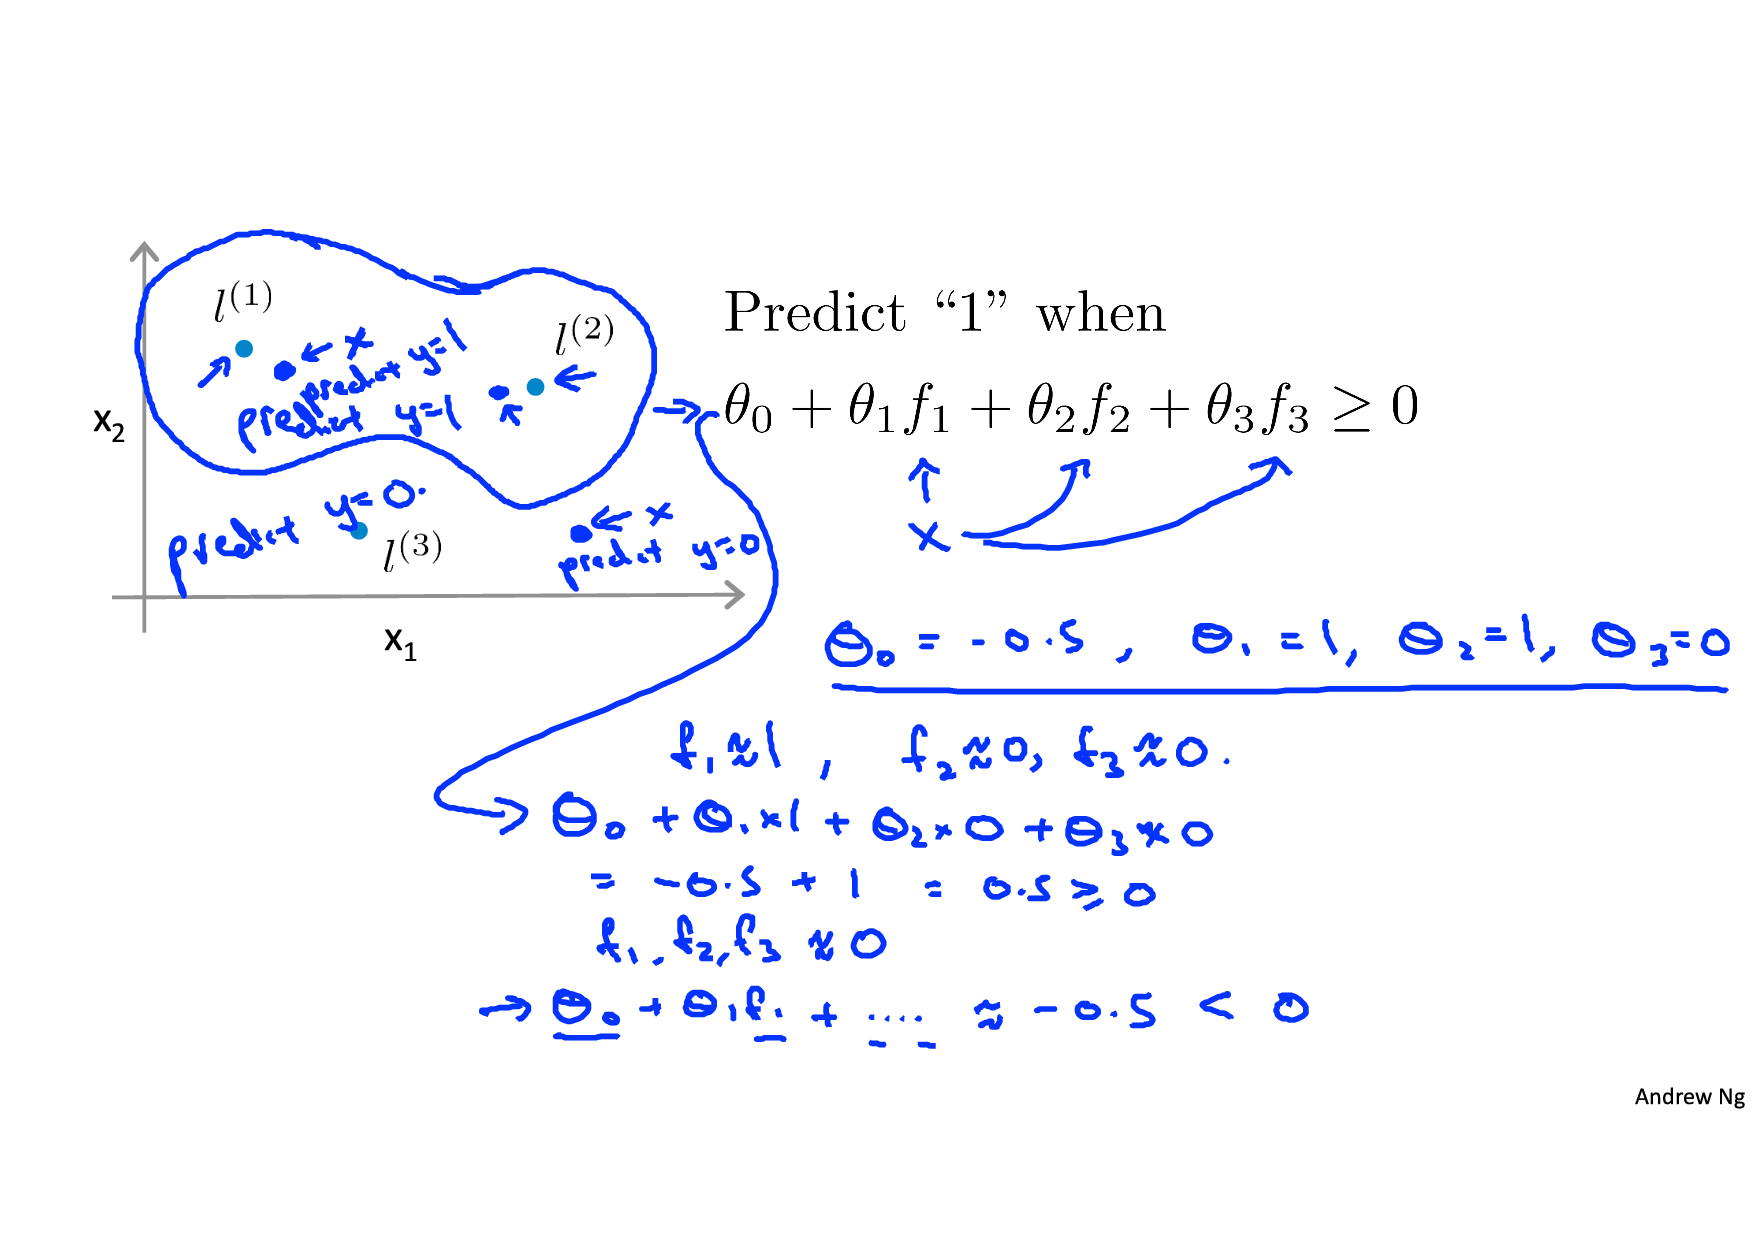 l^{(1)}
l^{(2)}
← x
predict y=1
predict y=1
x₂
predict y=0.
l^{(3)}
← x
predict y=0
x₁
Predict “1” when
→ θ₀ + θ₁f₁ + θ₂f₂ + θ₃f₃ ≥ 0
x
θ₀ = -0.5 , θ₁ = 1, θ₂ = 1, θ₃ = 0
f₁ ≈ 1 , f₂ ≈ 0, f₃ ≈ 0.
θ₀ + θ₁×1 + θ₂×0 + θ₃×0
= -0.5 + 1 = 0.5 ≥ 0
f₁, f₂, f₃ ≈ 0
→ θ₀ + θ₁f₁ + .... ≈ -0.5 < 0
Andrew Ng